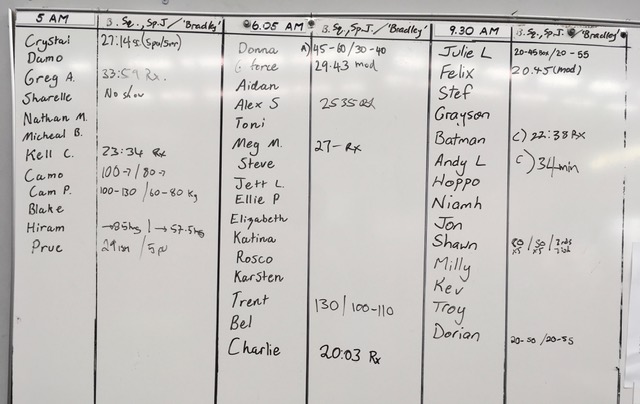 5 AM B. Sq., Sp.J / 'Bradley'
Crystal 27:14 (Spo/Smr)
Damo
Greg A. 33:59 Rx.
Sharelle No show
Nathan M.
Micheal B.
Kell C. 23:34 Rx
Camo 100→/80→
Cam P. 100-130 / 60-80 kg
Blake
Hiram →85kg | →57.5kg
Prue
6.05 AM B. Sq., Sp.J / 'Bradley'
Donna A) 45-60/30-40
G force 29.43 mod
Aidan
Alex S 25 35 Rx
Toni
Meg M. 27- Rx
Steve
Jett L.
Ellie P
Elizabeth
Katina
Rosco
Karsten
Trent 130/100-110
Bel
Charlie 20:03 Rx
9.30 AM B. Sq., Sp.J / 'Bradley'
Julie L 20-45 Box / 20-55
Felix 20.45 (mod)
Stef
Grayson
Batman C) 22:38 Rx
Andy L C) 34min
Hoppo
Niamh
Jon
Shawn
Milly
Kev
Troy
Dorian 20-50 / 20-55